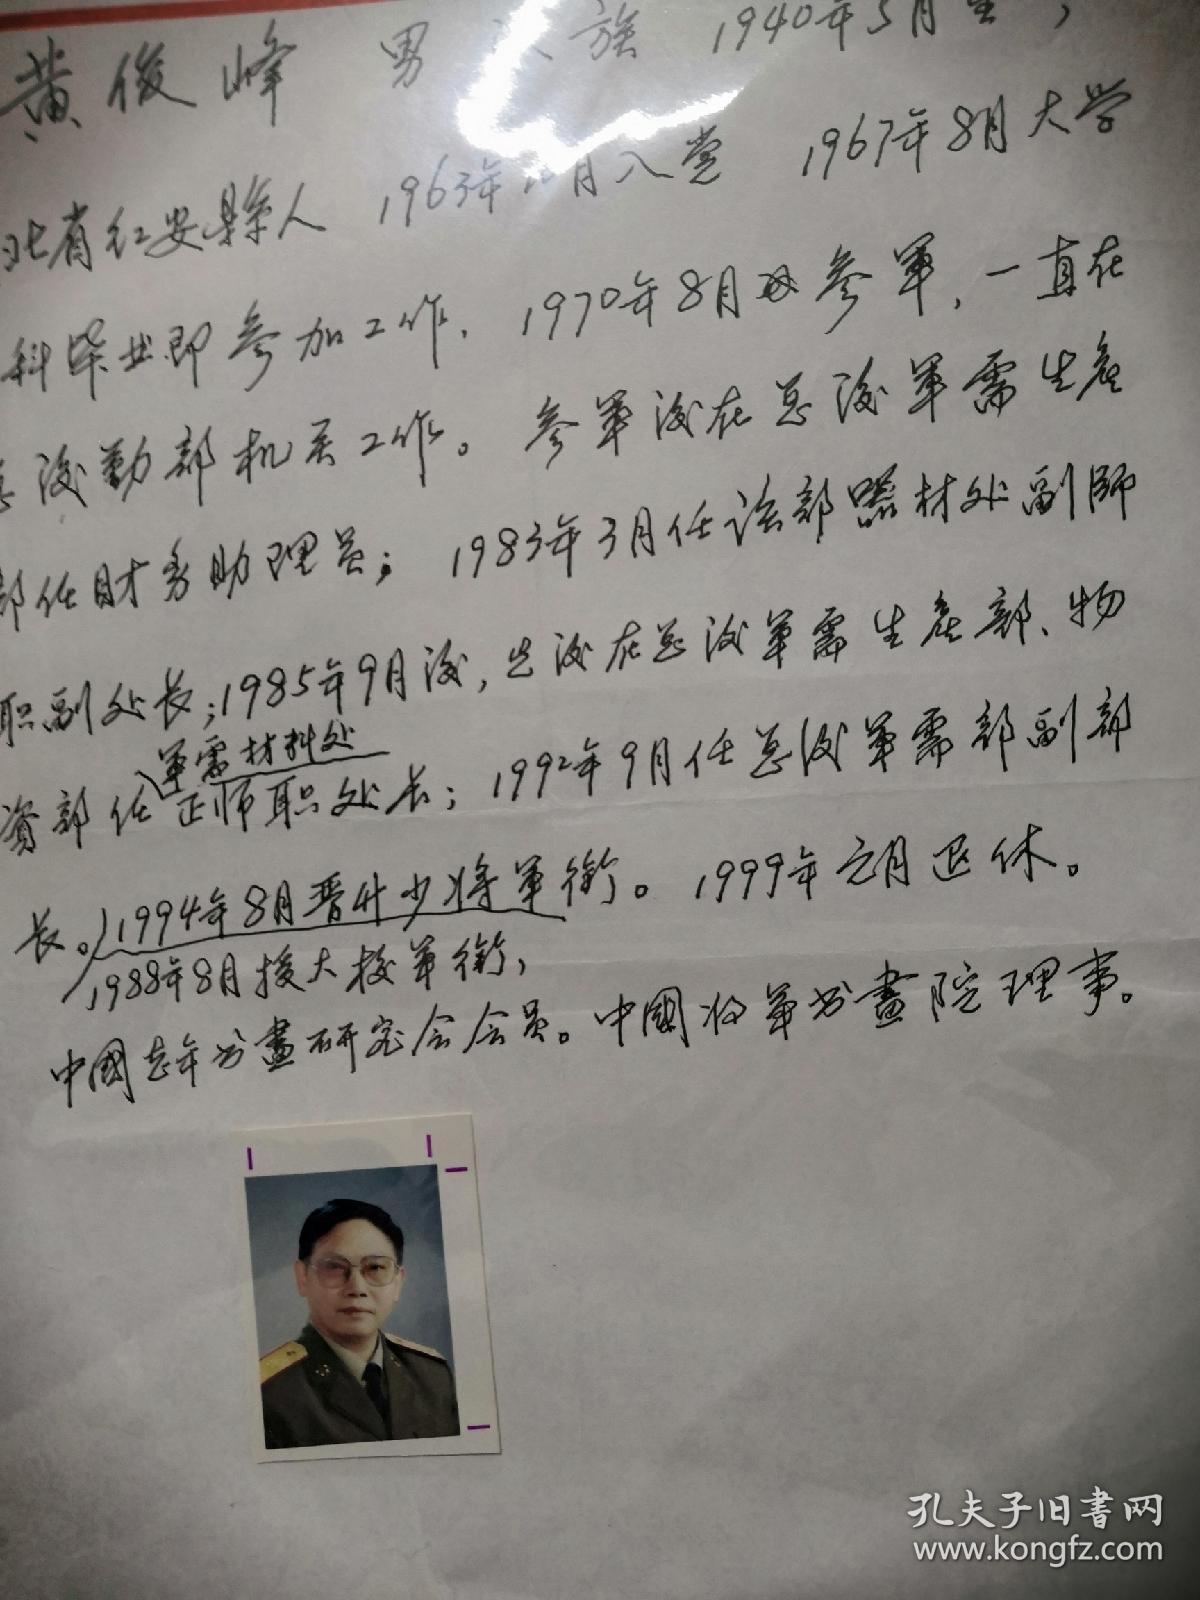 黄俊峰 男 族 1940年5月生，
北省红安縣人 1963年 月入党 1967年8月大学
科毕业即参加工作，1970年8月 参軍，一直在
后勤部机关工作。参軍後在总後軍需生產
部任财务助理员；1983年3月任该部器材处副師
职副处长；1985年9月後，先後在总後軍需生產部、物
軍需材料处
資部任正师职处长；1992年9月任总後軍需部副部
长。1994年8月晋升少将軍銜。1999年元月退休。
1988年8月授大校軍銜，
中國老年书畫研究会会员。中國将軍书畫院理事。
孔夫子旧書网
www.kongfz.com